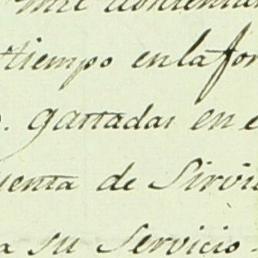 tiempo en la for
gastadas en e
uenta de Sirvi
a su Servicio